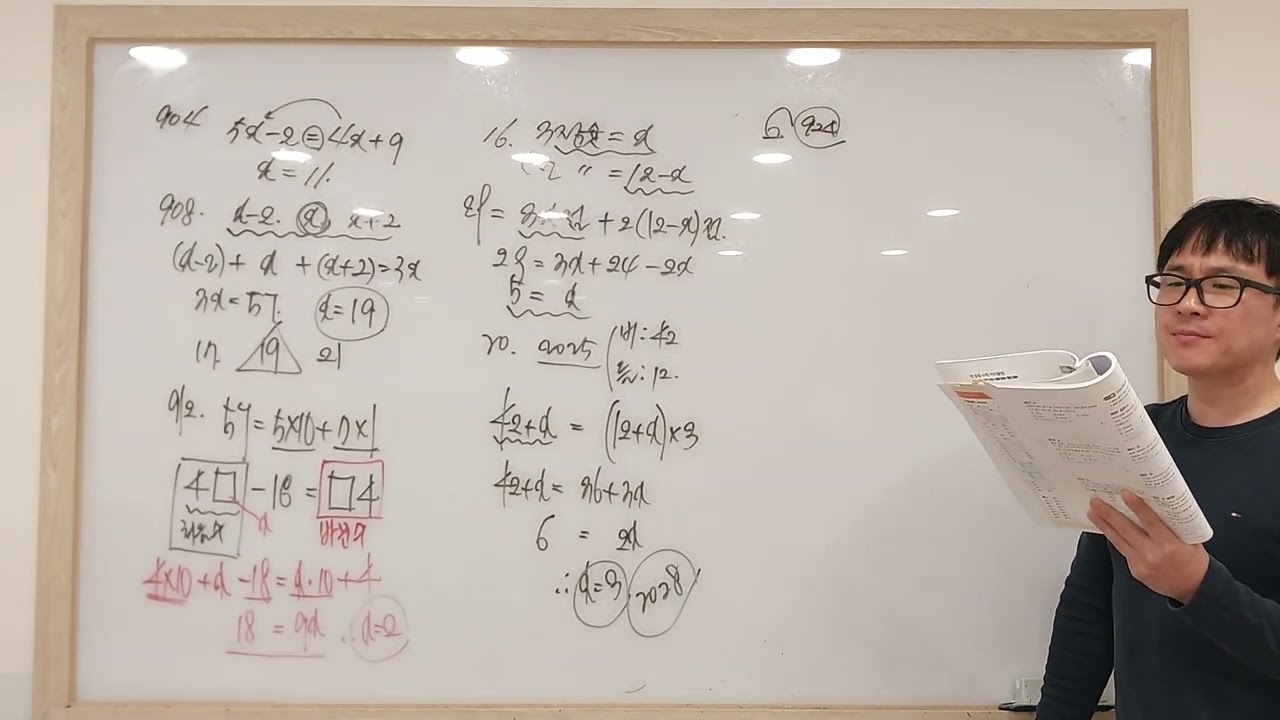 904 5x-2=4x+9
x=11.
908. x-2. x, x+2
(x-2)+ x +(x+2)=3x
3x=57. x=19
17. 19 21
912. 57=5×10+7×1
4□-18=□4
처음수 x 바뀐수
4×10+x-18=x·10+4
18=9x ∴x=2
16. 3점슛=x
2 〃 =12-x
+2(12-x)점.
29=3x+24-2x
5=x
20. 2025 버:42
들:12.
42+x=(12+x)×3
42+x=36+3x
6=2x
∴x=3, 2028
6 924